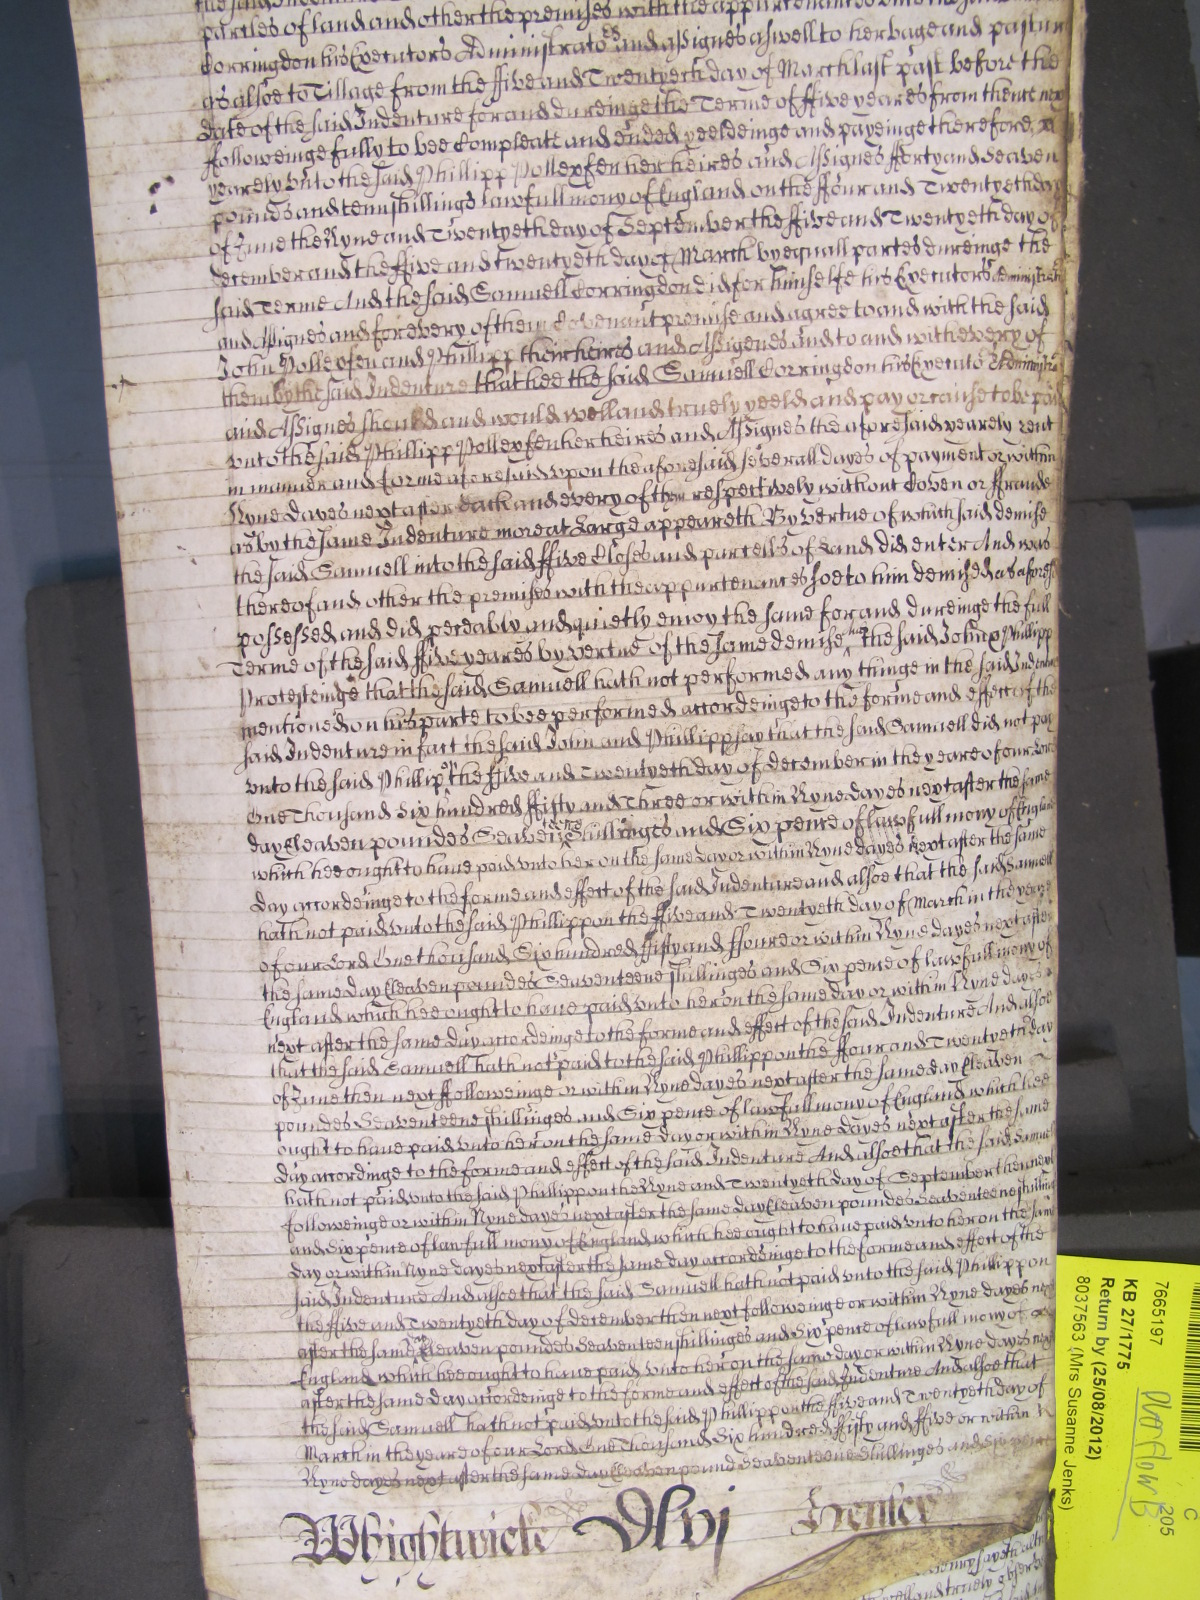 parcles of land and other the premises with the appurtenances unto the said
Corringdon his Executors Administrato:es and Assignes aswell to herbage and pastur
as alsoe to Tillage from the ffive and Twentyeth day of March last past before the
date of the said Indenture for and dureinge the Terme of ffive yeares from thence nex
followeinge fully to bee Compleate and ended yeeldeinge and payeinge therefore
yearely unto the said Phillipp Pollexfen her heires and Assignes fforty and Seaven
poundes and tenn shillings lawfull mony of England on the ffour and Twentyeth day
of June the Nyne and Twentyeth day of September the ffive and Twentyeth day of
december and the ffive and twentyeth day of March by equall partes dureinge the
said Terme And the said Samuell Corringdon did for himselfe his Executors Administrat
and Assignes and for every of them Covenant promise and agree to and with the said
John Pollexfen and Phillipp their heires and Assignes and to and with every of
them by the said Indenture that hee the said Samuell Corringdon his Executo Administra
and Assignes should and would well and truely yeeld and pay or cause to be paid
unto the said Phillipp Pollexfen her heires and Assignes the aforesaid yearely rent
in manner and forme aforesaid upon the aforesaid severall dayes of payment or within
Nyne dayes next after each and every of them respectively without Coven or ffraude
as by the same Indenture more at Large appeareth By vertue of which said demise
the said Samuell into the said ffive Closes and parcells of Land did enter And was
thereof and other the premises with the appurtenances soe to him demised as aforesd
possessed and did peceably and quietly enioy the same for and dureinge the full
Terme of the said ffive yeares by vertue of the same demise the said John & Phillipp
Protesteinge that the said Samuell hath not performed any thinge in the said Indenture
mentioned on his parte to bee performed accordeinge to the forme and effect of the
said Indenture in fact the said John and Phillipp say that the said Samuell did not pay
unto the said Phillip on the ffive and Twentyeth day of december in the yeare of our Lord
One Thousand Six hundred ffifty and Three or within Nyne dayes next after the same
day Eleaven poundes Seaventeene Shillinges and Six pence of lawfull mony of England
which hee ought to have paid unto her on the same day or within Nyne dayes next after the same
day accordeinge to the forme and effect of the said Indenture and alsoe that the said Samuell
hath not paid unto the said Phillipp on the ffive and Twentyeth day of March in the yeare
of our Lord One thousand Six hundred ffifty and ffoure or within Nyne dayes next after
the same day Eleaven poundes Seaventeene shillinges and Six pence of lawfull mony of
England which hee ought to have paid unto her on the same day or within Nyne dayes
next after the same day accordeinge to the forme and effect of the said Indenture And alsoe
that the said Samuell hath not paid to the said Phillipp on the ffour and Twentyeth day
of June then next ffolloweinge or within Nyne dayes next after the same day Eleaven
poundes Seaventeene shillinges and Six pence of lawfull mony of England which hee
ought to have paid unto her on the same day or within Nyne dayes next after the same
day accordinge to the forme and effect of the said Indenture And alsoe that the said Samuel
hath not paid unto the said Phillipp on the Nyne and Twentyeth day of September then next
followeinge or within Nyne dayes next after the same day Eleaven poundes Seaventeene shillings
and Six pence of lawfull mony of England which hee ought to have paid unto her on the same
day or within Nyne dayes next after the same day accordeinge to the forme and effect of the
said Indenture And alsoe that the said Samuell hath not paid unto the said Phillipp on
the ffive and Twentyeth day of december then next followeinge or within Nyne dayes next
after the same day Eleaven poundes Seaventeen shillinges and Six pence of lawfull mony of
England which hee ought to have paid unto her on the same day or within Nyne dayes next
after the same day accordeinge to the forme and effect of the said Indenture And alsoe that
the said Samuell hath not paid unto the said Phillipp on the ffive and Twentyeth day of
March in the yeare of our Lord One Thousand Six hundred ffifty and ffive or within
Nyne dayes next after the same day Eleaven pound Seaventeene Shillinges and Six pence
Whightwicke Dlvj Henley
7665197 C 205
KB 27/1775
Return by (25/08/2012)
8037563 (Mrs Susanne Jenks)